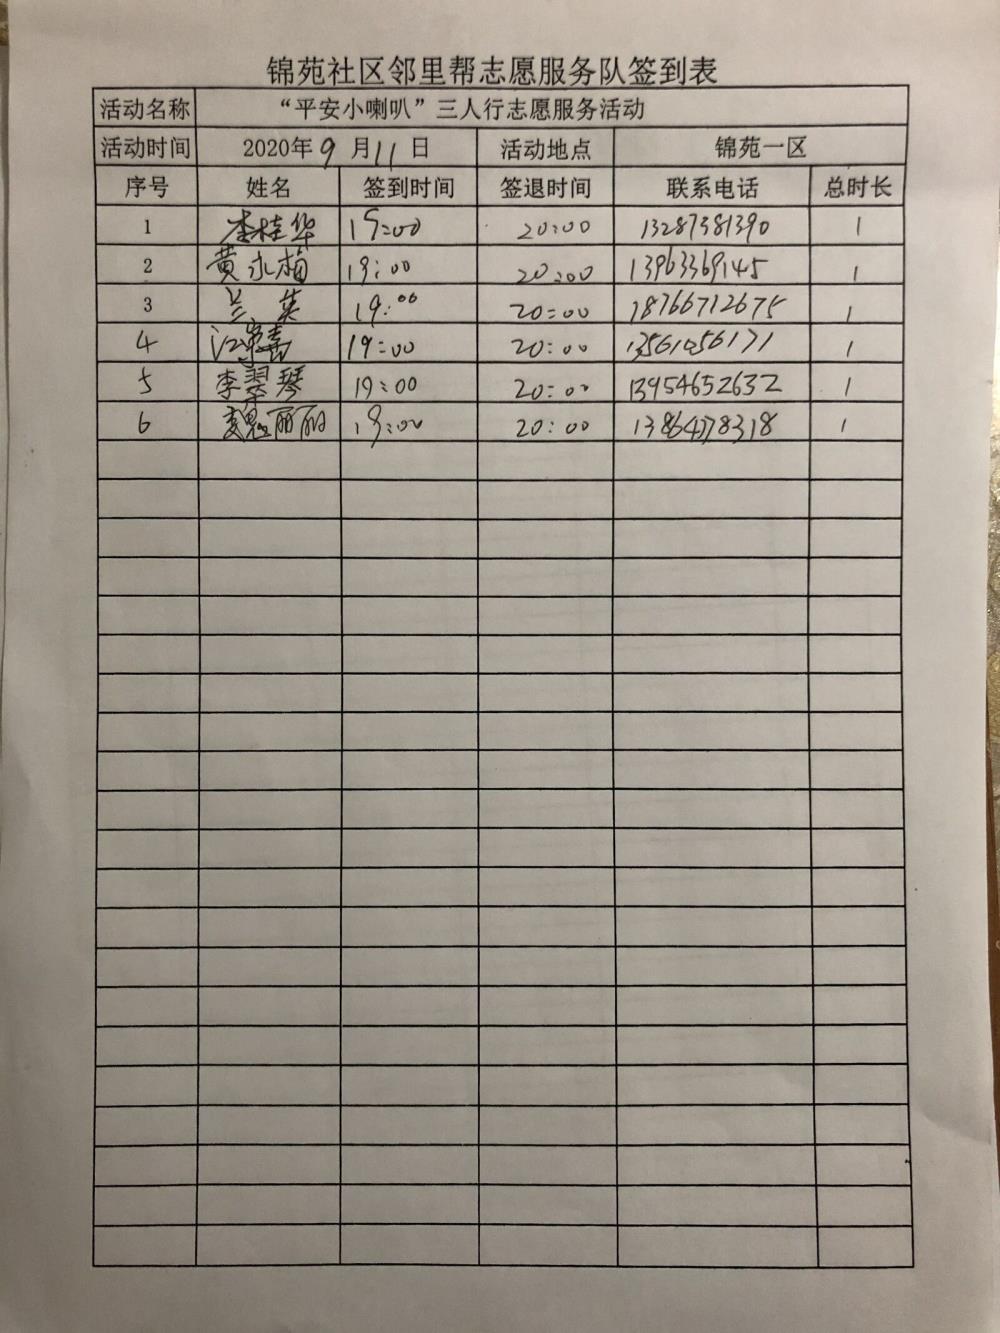 锦苑社区邻里帮志愿服务队签到表
活动名称 “平安小喇叭”三人行志愿服务活动
活动时间 2020年9月11日 活动地点 锦苑一区
序号 姓名 签到时间 签退时间 联系电话 总时长
1 李桂华 19:00 20:00 13287381390 1
2 黄永梅 19:00 20:00 13963369145 1
3 兰英 19:00 20:00 18766712675 1
4 江 19:00 20:00 13561056171 1
5 李翠琴 19:00 20:00 13954652632 1
6 魏丽丽 19:00 20:00 1